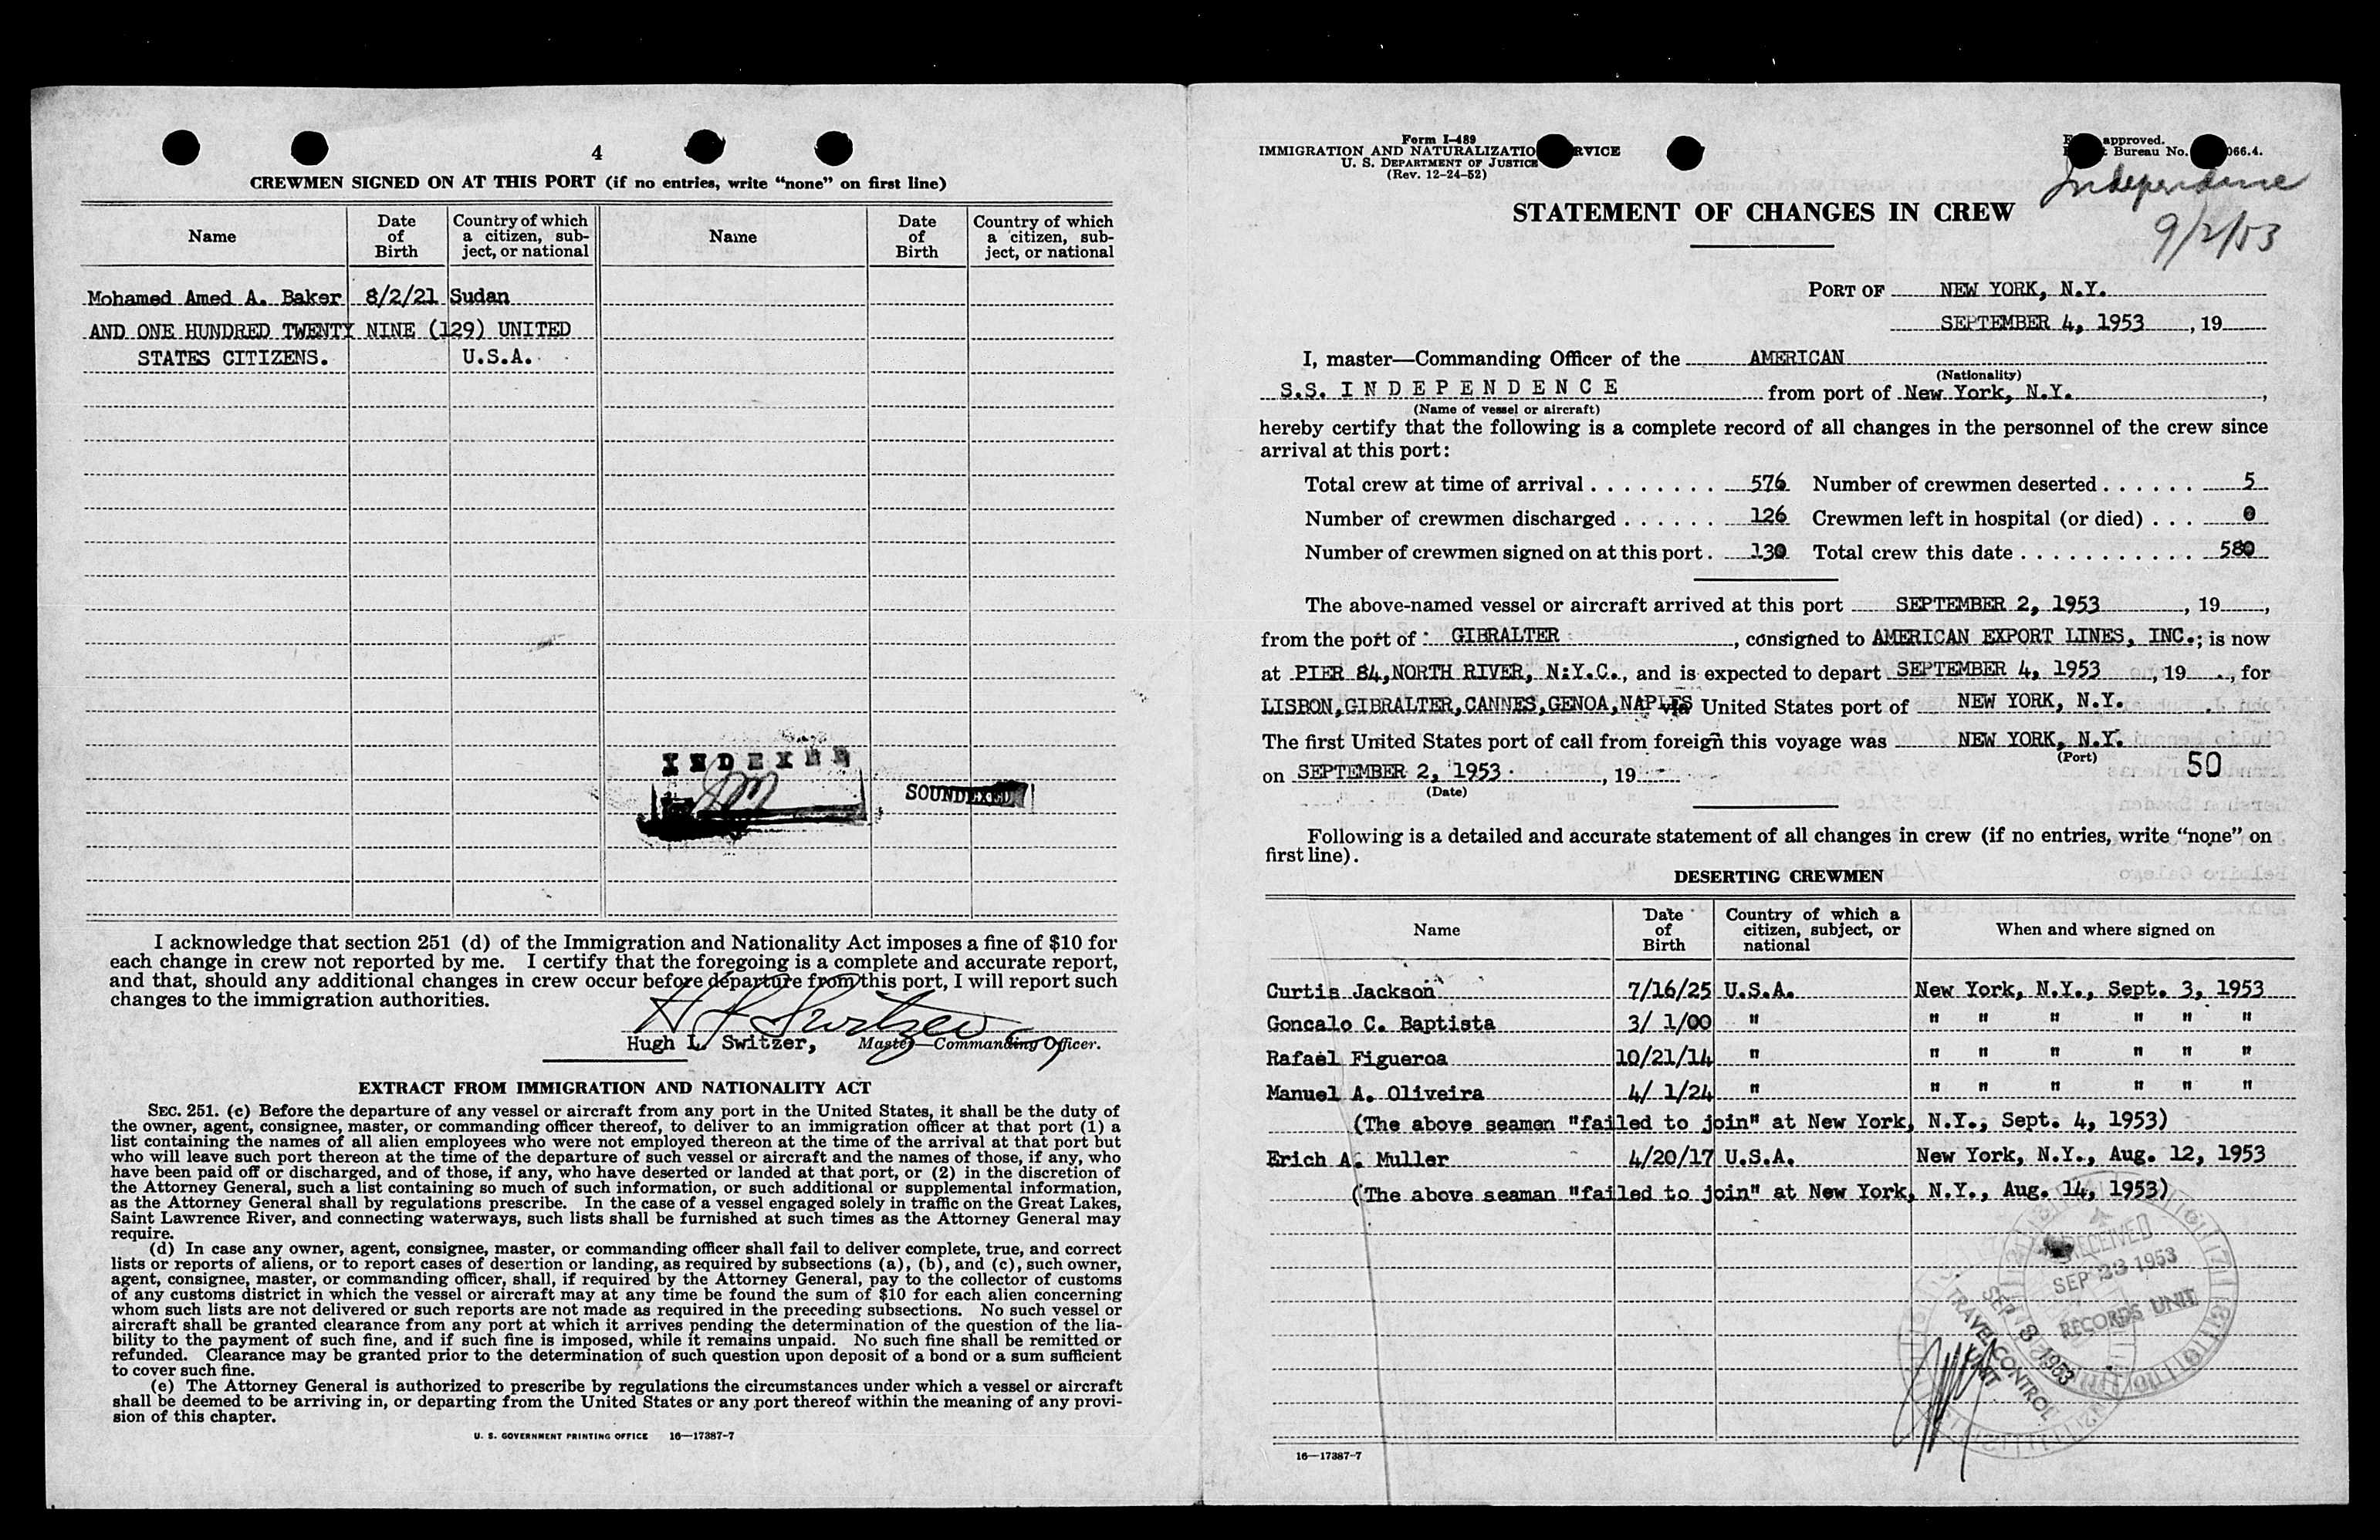 4
CREWMEN SIGNED ON AT THIS PORT (if no entries, write “none” on first line)
Name
Date of Birth
Country of which a citizen, sub-ject, or national
Name
Date of Birth
Country of which a citizen, sub-ject, or national
Mohamed Amed A. Baker 8/2/21 Sudan
AND ONE HUNDRED TWENTY NINE (129) UNITED
STATES CITIZENS. U.S.A.
INDEXED
SOUNDEXED
I acknowledge that section 251 (d) of the Immigration and Nationality Act imposes a fine of $10 for
each change in crew not reported by me. I certify that the foregoing is a complete and accurate report,
and that, should any additional changes in crew occur before departure from this port, I will report such
changes to the immigration authorities.
Hugh L. Switzer, Master—Commanding Officer.
EXTRACT FROM IMMIGRATION AND NATIONALITY ACT
SEC. 251. (c) Before the departure of any vessel or aircraft from any port in the United States, it shall be the duty of
the owner, agent, consignee, master, or commanding officer thereof, to deliver to an immigration officer at that port (1) a
list containing the names of all alien employees who were not employed thereon at the time of the arrival at that port but
who will leave such port thereon at the time of the departure of such vessel or aircraft and the names of those, if any, who
have been paid off or discharged, and of those, if any, who have deserted or landed at that port, or (2) in the discretion of
the Attorney General, such a list containing so much of such information, or such additional or supplemental information,
as the Attorney General shall by regulations prescribe. In the case of a vessel engaged solely in traffic on the Great Lakes,
Saint Lawrence River, and connecting waterways, such lists shall be furnished at such times as the Attorney General may
require.
(d) In case any owner, agent, consignee, master, or commanding officer shall fail to deliver complete, true, and correct
lists or reports of aliens, or to report cases of desertion or landing, as required by subsections (a), (b), and (c), such owner,
agent, consignee, master, or commanding officer, shall, if required by the Attorney General, pay to the collector of customs
of any customs district in which the vessel or aircraft may at any time be found the sum of $10 for each alien concerning
whom such lists are not delivered or such reports are not made as required in the preceding subsections. No such vessel or
aircraft shall be granted clearance from any port at which it arrives pending the determination of the question of the lia-
bility to the payment of such fine, and if such fine is imposed, while it remains unpaid. No such fine shall be remitted or
refunded. Clearance may be granted prior to the determination of such question upon deposit of a bond or a sum sufficient
to cover such fine.
(e) The Attorney General is authorized to prescribe by regulations the circumstances under which a vessel or aircraft
shall be deemed to be arriving in, or departing from the United States or any port thereof within the meaning of any provi-
sion of this chapter.
U. S. GOVERNMENT PRINTING OFFICE 16—17387-7
Form I-489
IMMIGRATION AND NATURALIZATIO RVICE
U. S. DEPARTMENT OF JUSTICE
(Rev. 12-24-52)
approved.
Bureau No. 066.4.
Independence
9/2/53
STATEMENT OF CHANGES IN CREW
PORT OF NEW YORK, N.Y.
SEPTEMBER 4, 1953, 19
I, master—Commanding Officer of the AMERICAN
(Nationality)
S.S. I N D E P E N D E N C E from port of New York, N.Y.,
(Name of vessel or aircraft)
hereby certify that the following is a complete record of all changes in the personnel of the crew since
arrival at this port:
Total crew at time of arrival . . . . . . . . 576 Number of crewmen deserted . . . . . . 5
Number of crewmen discharged . . . . . . 126 Crewmen left in hospital (or died) . . . 0
Number of crewmen signed on at this port . 130 Total crew this date . . . . . . . . . . . 580
The above-named vessel or aircraft arrived at this port SEPTEMBER 2, 1953, 19,
from the port of GIBRALTER, consigned to AMERICAN EXPORT LINES, INC.; is now
at PIER 84,NORTH RIVER, N.Y.C., and is expected to depart SEPTEMBER 4, 1953, 19, for
LISBON,GIBRALTER,CANNES,GENOA,NAPLES via United States port of NEW YORK, N.Y.
The first United States port of call from foreign this voyage was NEW YORK, N.Y.
(Port)
50
on SEPTEMBER 2, 1953, 19
(Date)
Following is a detailed and accurate statement of all changes in crew (if no entries, write “none” on
first line).
DESERTING CREWMEN
Name
Date of Birth
Country of which a citizen, subject, or national
When and where signed on
Curtis Jackson 7/16/25 U.S.A. New York, N.Y., Sept. 3, 1953
Goncalo C. Baptista 3/ 1/00 " " " " " " "
Rafael Figueroa 10/21/14 " " " " " " "
Manuel A. Oliveira 4/ 1/24 " " " " " " "
(The above seamen "failed to join" at New York, N.Y., Sept. 4, 1953)
Erich A. Muller 4/20/17 U.S.A. New York, N.Y., Aug. 12, 1953
(The above seaman "failed to join" at New York, N.Y., Aug. 14, 1953)
RECEIVED
SEP 23 1953
RECORDS UNIT
SEP 8 1953
TRAVEL CONTROL
UNIT
16—17387-7